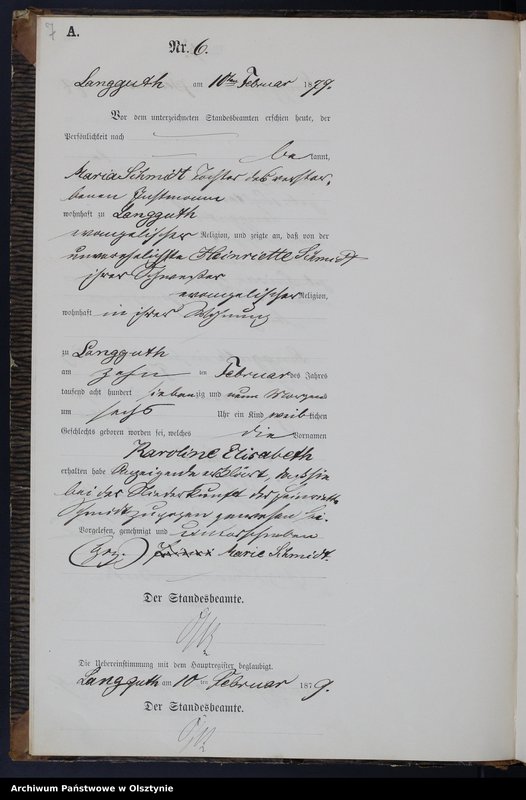 7
A.
Nr. 6.
Langguth am 10ten Februar 1879.
Vor dem unterzeichneten Standesbeamten erschien heute, der
Persönlichkeit nach
bekannt,
Maria Schmidt Tochter des verstor-
benen Instmann
wohnhaft zu Langguth
evangelischer Religion, und zeigte an, daß von der
unverehelichte Heinriette Schmidt
ihrer Schwester
evangelischer Religion,
wohnhaft in ihrer Wohnung
zu Langguth
am zehn ten Februar des Jahres
tausend acht hundert siebenzig und neun Morgens
um sechs Uhr ein Kind weiblichen
Geschlechts geboren worden sei, welches die Vornamen
Karoline Elisabeth
erhalten habe Anzeigende erklärt, daß sie
bei der Niederkunft der Heinriette
Schmidt zugegen gewesen sei.
Vorgelesen, genehmigt und unterschrieben
(gez.) Marie Schmidt.
Der Standesbeamte.
Die Uebereinstimmung mit dem Hauptregister beglaubigt.
Langguth am 10 ten Februar 1879.
Der Standesbeamte.
Archiwum Państwowe w Olsztynie